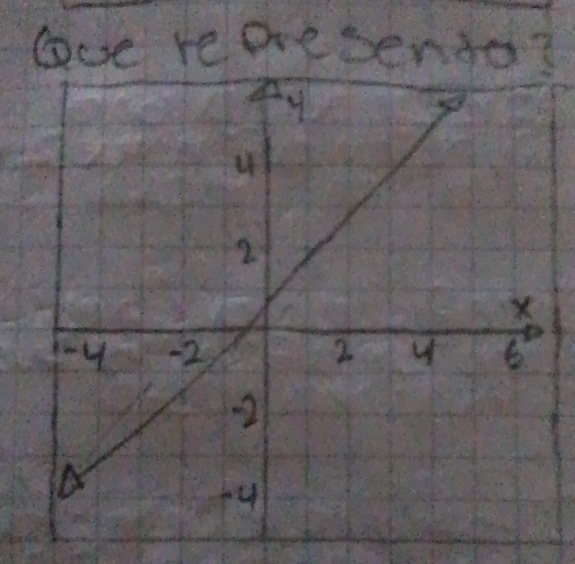 Que representa?
y
4
2
x
-4 -2 2 4 6
-2
-4